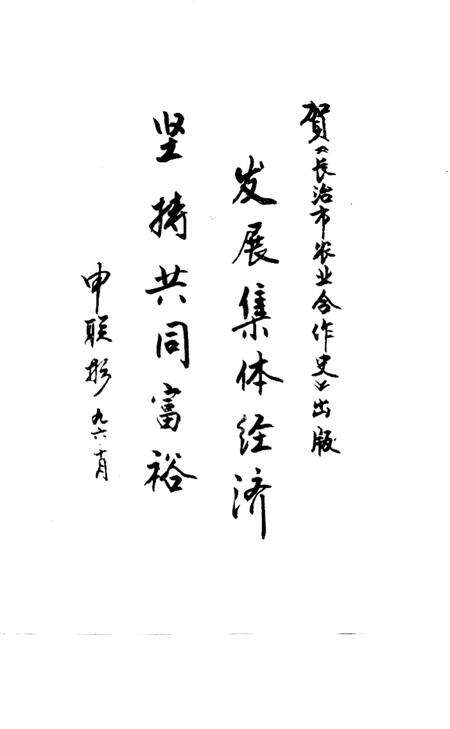 贺《长治市农业合作史》出版
发展集体经济
坚持共同富裕
申联彬 九六.十月